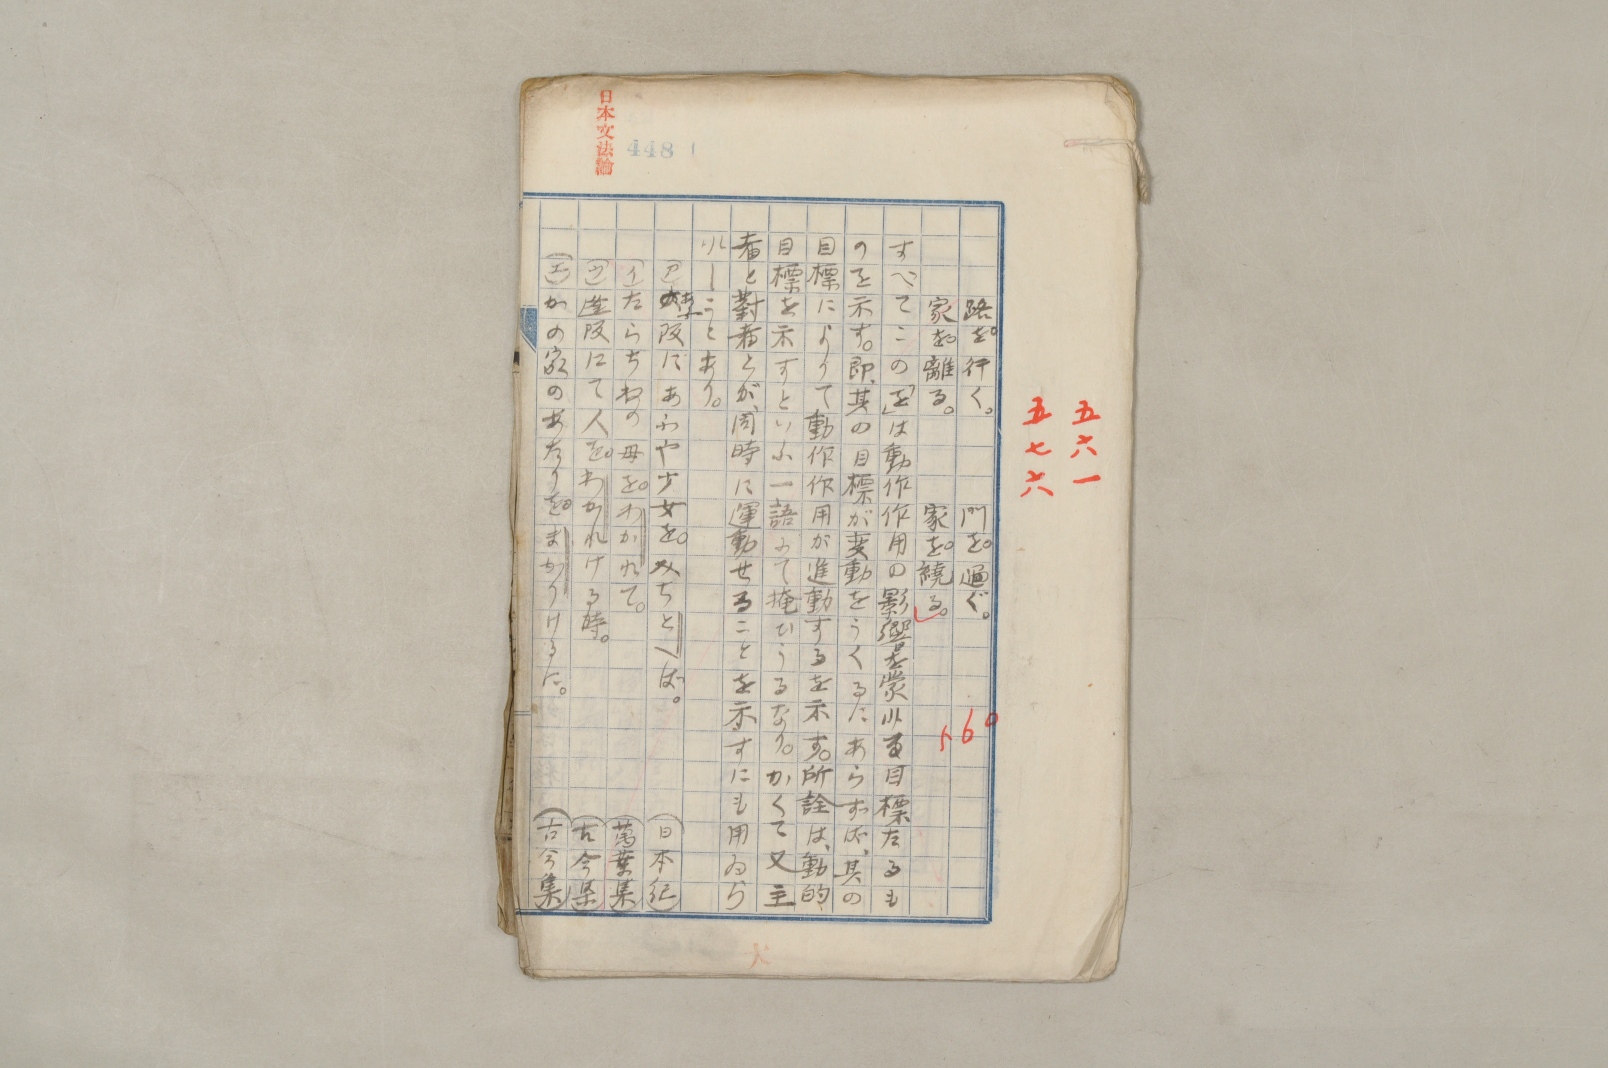 日本文法論
448
五六一
五七六
560
路を行く。　門を過ぐ。
家を離る。　家を繞る。
すべてこの「を」は動作作用の影響を蒙れる目標たるも
のを示す。即、其の目標が変動をうくるにあらずば、其の
目標によりて動作作用が進動するを示す。所詮は、動的
目標を示すといふ一語にて掩ひうるなり。かくて又主
者と對者とが、同時に運動せることを示すにも用ゐら
れしことあり。
(ア)大阪にあふや少女を。みちとへば。（日本紀）
(イ)たらちねの母を。わかれて。（萬葉集）
(ウ)逢阪にて人を。わかれける時。（古今集）
(エ)かの家のあたりを。まかりけるに。（古今集）